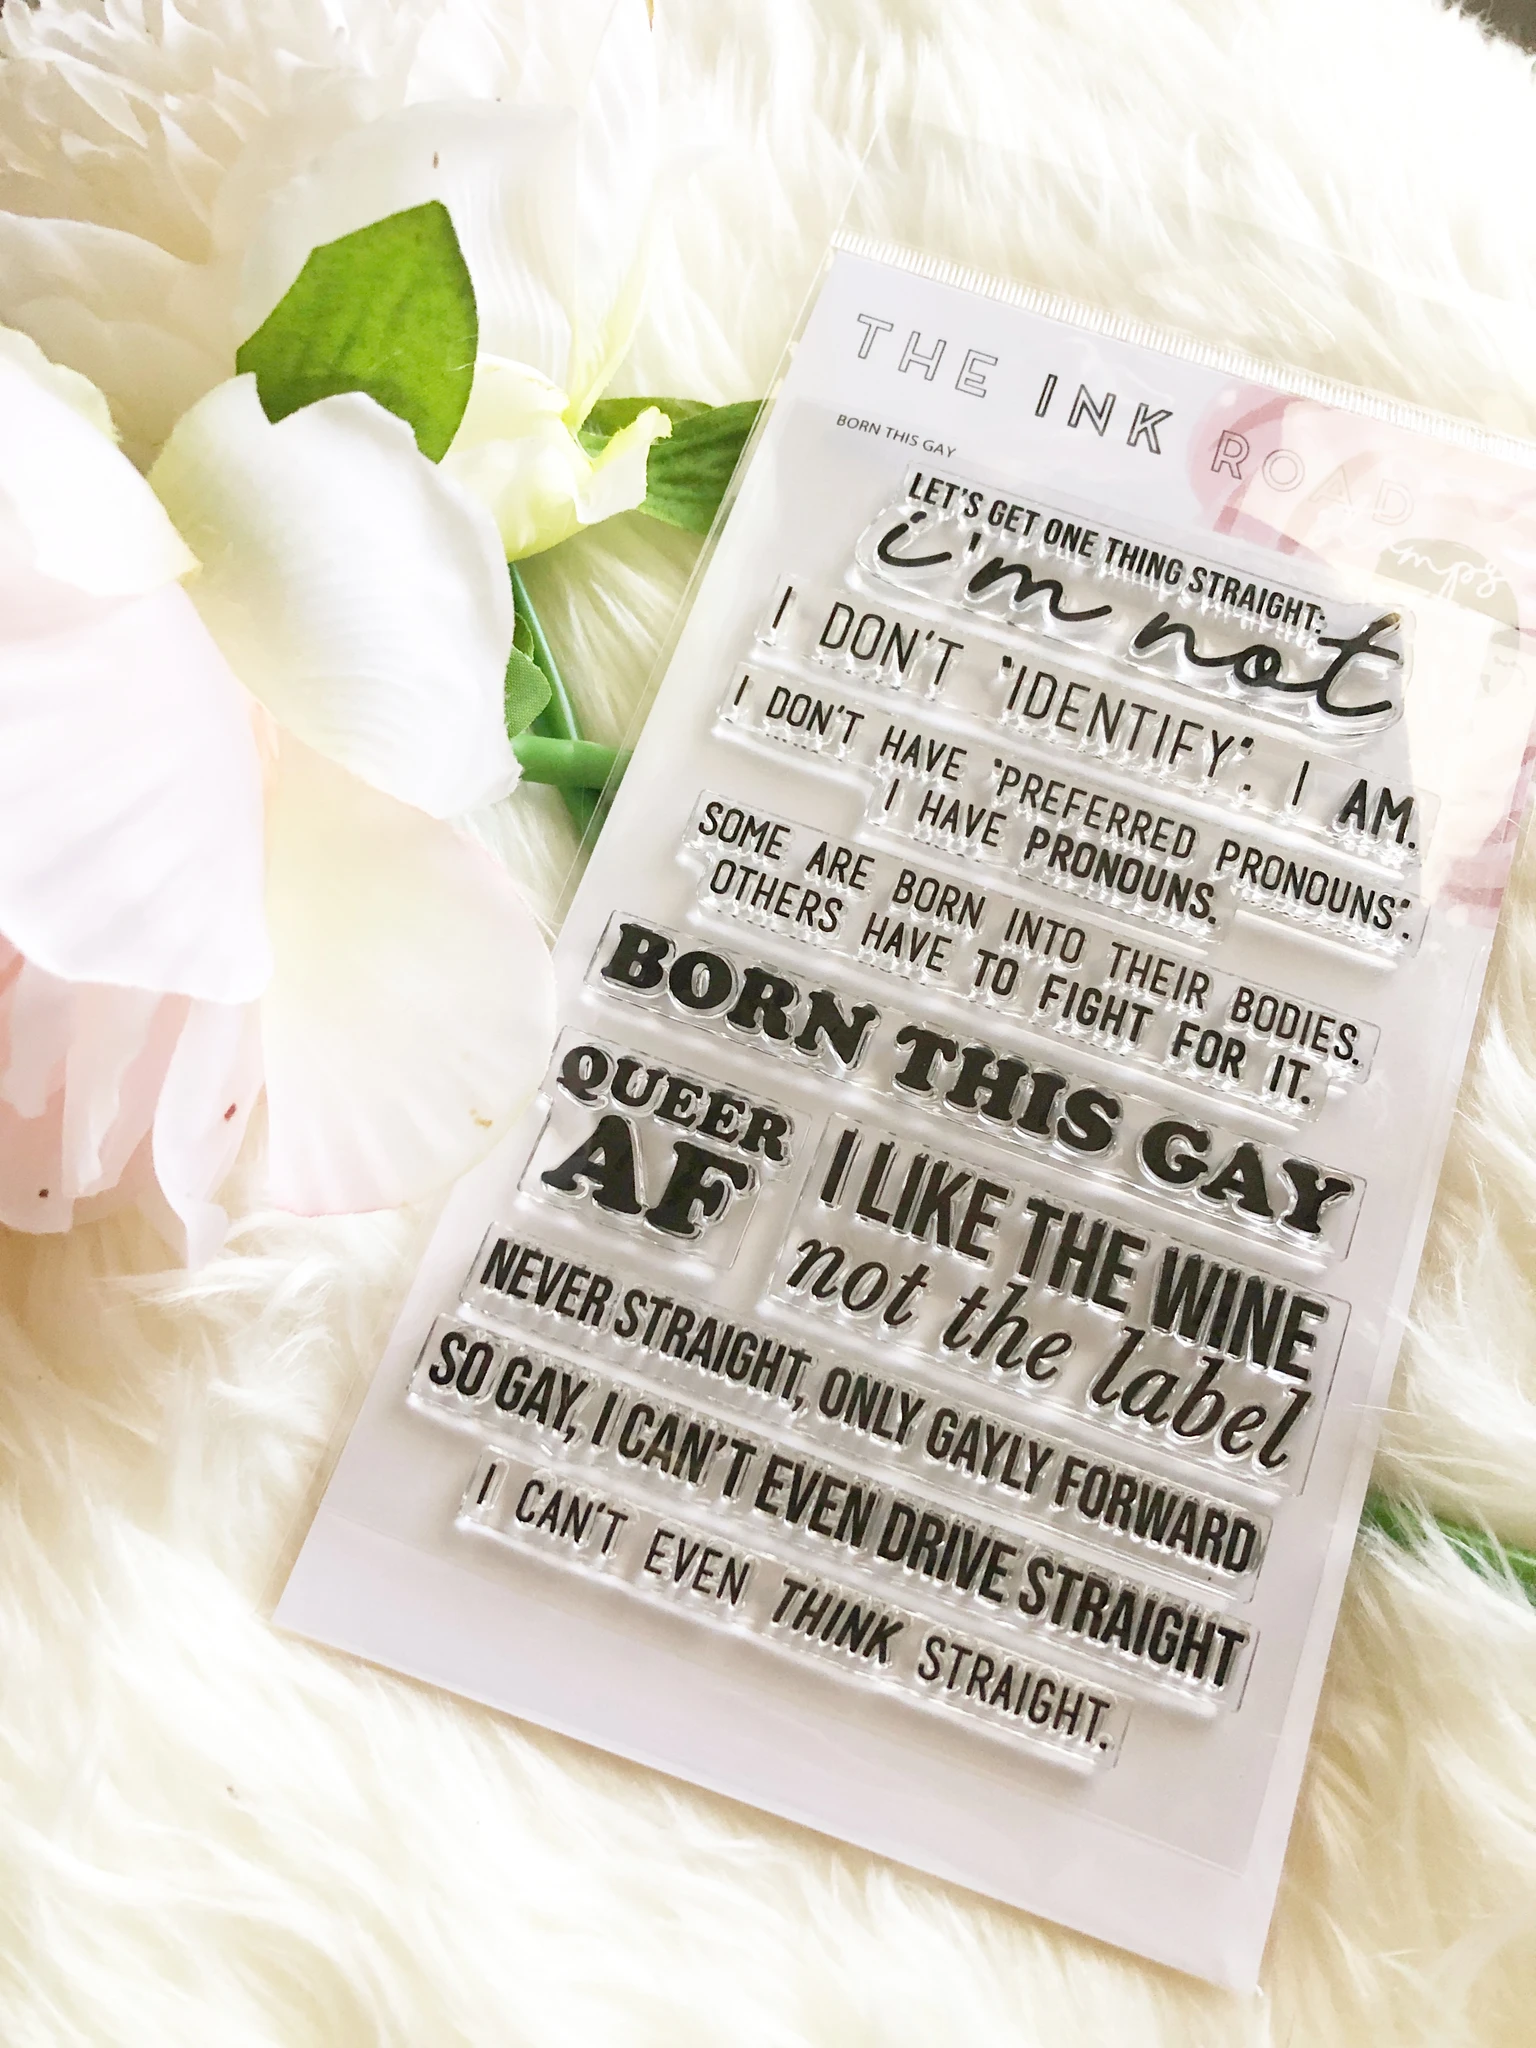 THE INK ROAD
BORN THIS GAY
mps
LET'S GET ONE THING STRAIGHT:
i'm not
I DON'T "IDENTIFY". I AM.
I DON'T HAVE "PREFERRED PRONOUNS".
I HAVE PRONOUNS.
SOME ARE BORN INTO THEIR BODIES.
OTHERS HAVE TO FIGHT FOR IT.
BORN THIS GAY
QUEER
AF
I LIKE THE WINE
not the label
NEVER STRAIGHT, ONLY GAYLY FORWARD
SO GAY, I CAN'T EVEN DRIVE STRAIGHT
I CAN'T EVEN THINK STRAIGHT.